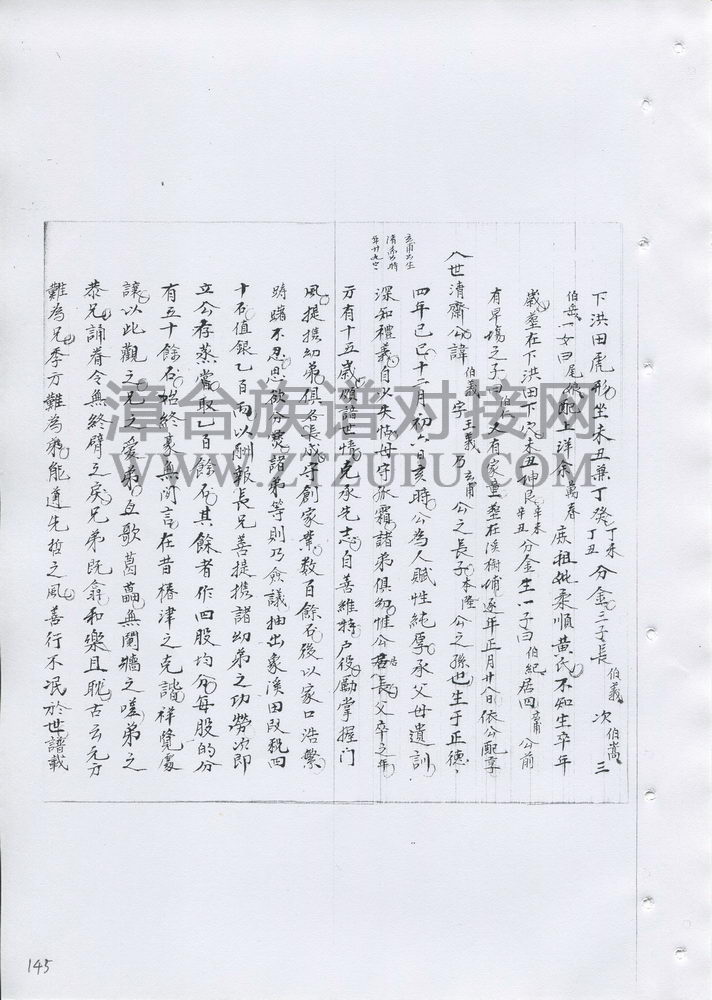 下洪田虎形坐未丑兼丁癸丁未丁丑分金三子長伯義次伯嵩三
伯岳一女曰尾娘配上洋余萬春 庶祖妣柔順黄氏不知生卒年
歲塟在下洪田下穴未丑坤艮辛未辛丑分金生一子曰伯紀居四玄甫公前
有早塲之子曰伯仁又有家童塟在溪樹埔逐年正月廿八日依公配享
八世清齋公諱伯義字玉義乃玄甫公之長子本隆公之孫也生于正德
四年己巳十二月初六日亥時公為人賦性純厚承父母遺訓
玄甫公生
清齋公時
年廿九也
深知禮義自以失怙母守孤霜諸弟俱幼惟公居長父卒之年
方有十五歲頗諳世情克承先志自善維持户役勵掌握門
風提携幼弟俱名長成守創家業数百餘石後以家口浩繁
時購不忍思欲分爨諸弟等則乃僉議抽出象溪田改税四
十石值銀乙百兩以酬報長兄善提携諸幼弟之功勞次即
立公存蒸嘗取乙百餘石其餘者作四股均分每股的分
有五十餘石始終衰無间言在昔椿津之克諧祥覽處
讓以此觀之兄之愛弟互歌葛藟無鬩牆之嗟弟之
恭兄誦脊令無終臂之戾兄弟既翕和樂且耽古云元方
難為兄季方難為弟能遵先哲之風善行不泯於世譜載
漳合族谱对接网
WWW.ZTZUPU.COM
145